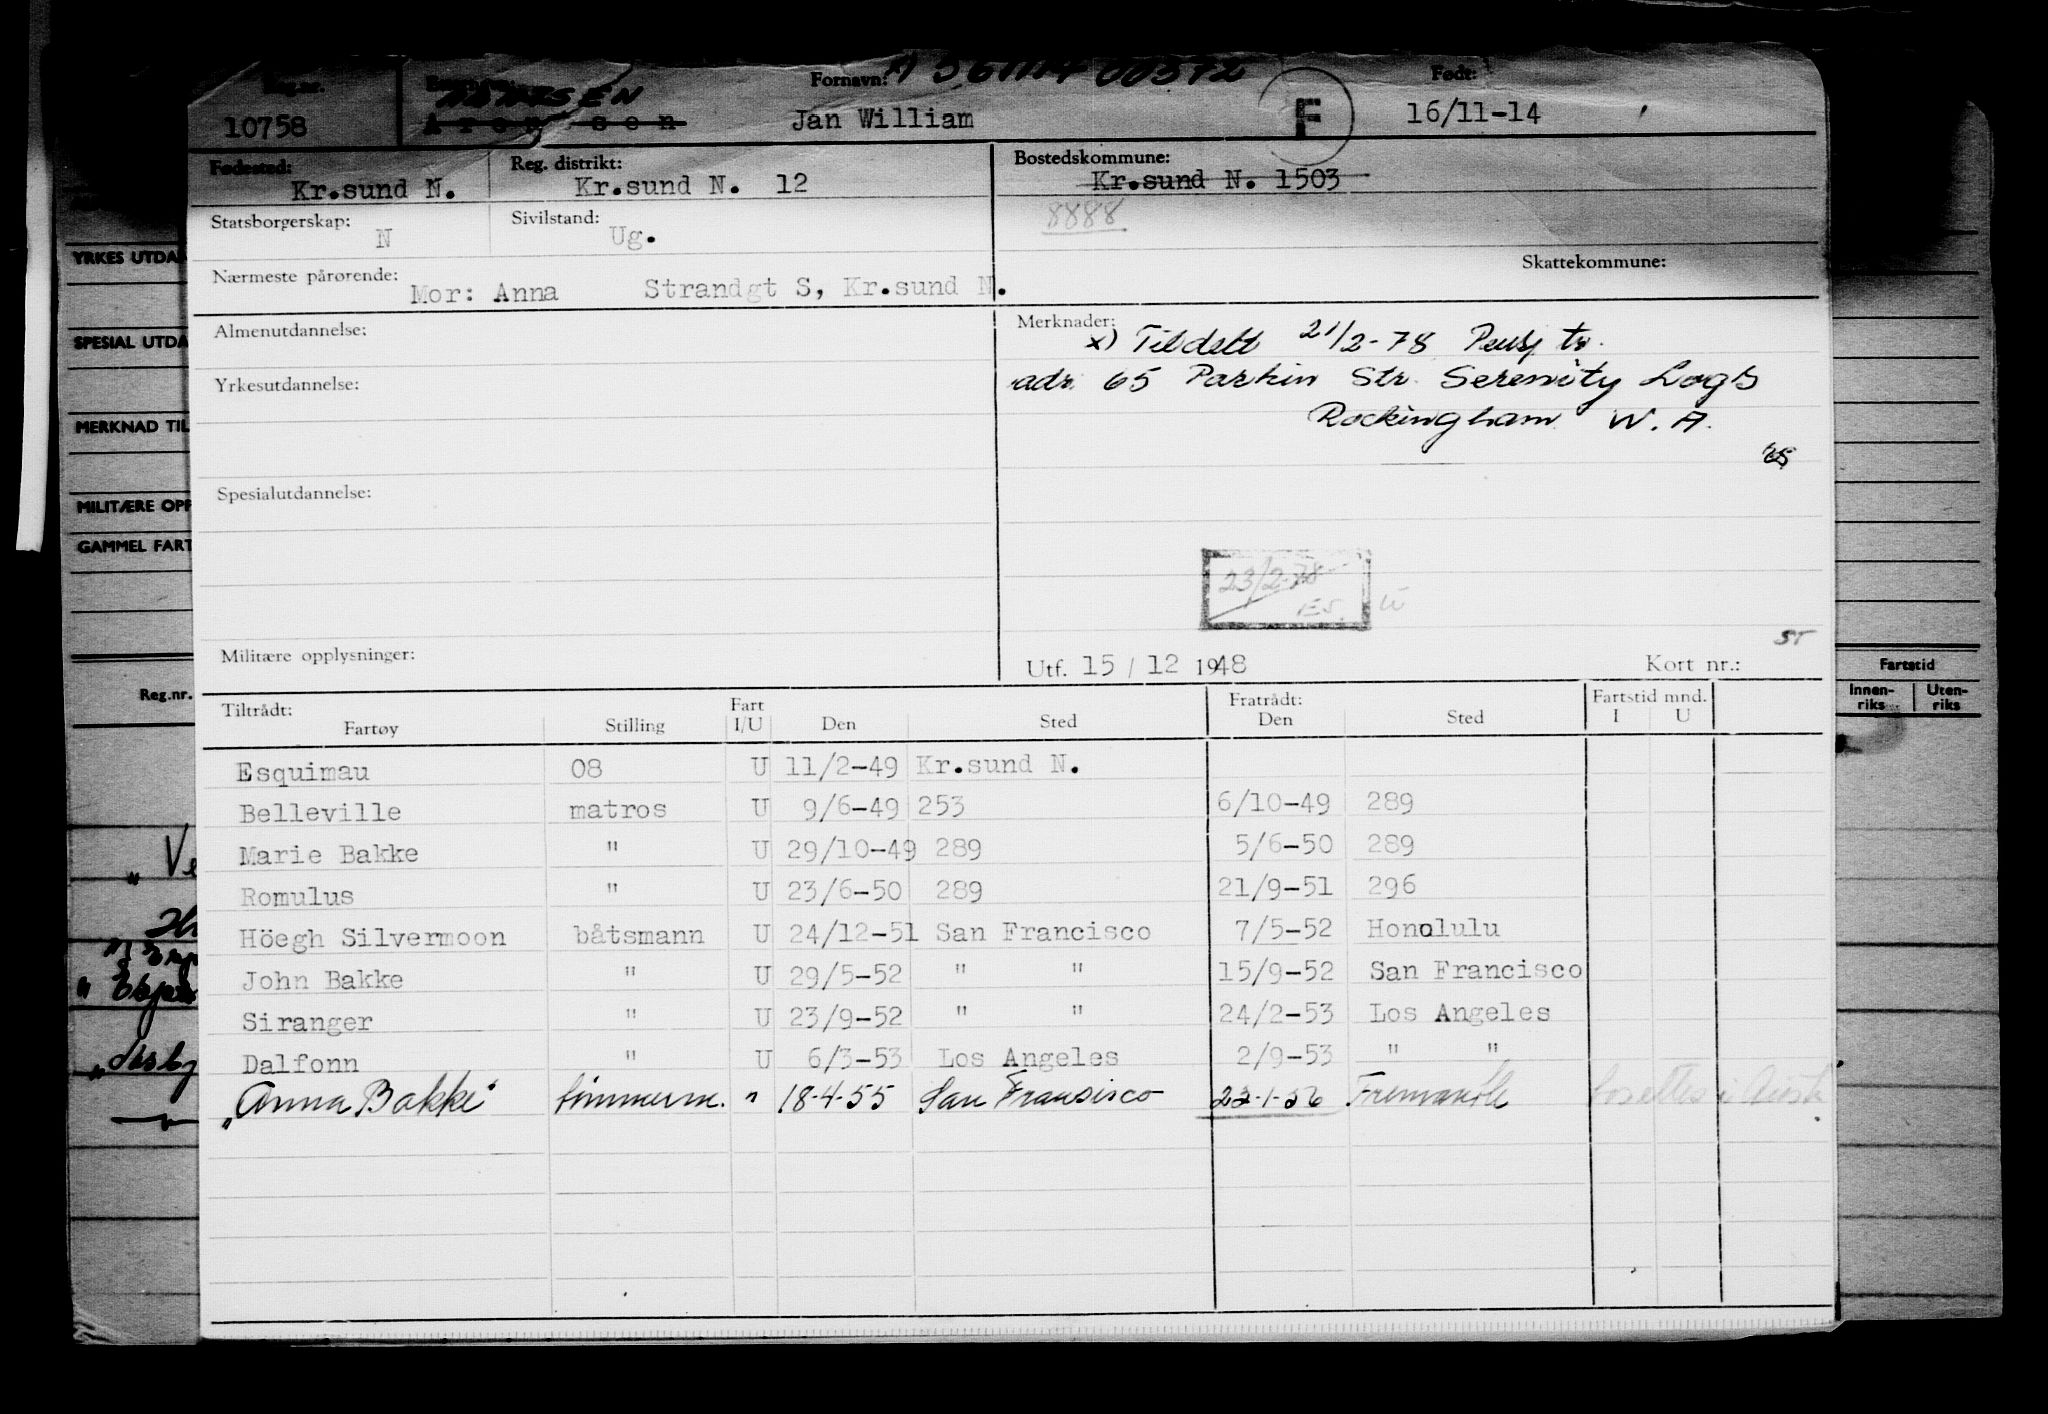 Reg.nr. Fornavn: Født:
10758 Jan William F 16/11-14
Fødested: Reg. distrikt: Bostedskommune:
Kr.sund N. Kr.sund N. 12 Kr.sund N. 1503
Statsborgerskap: N Sivilstand: Ug. 8888
Skattekommune:
Nærmeste pårørende: Mor: Anna Strandgt S, Kr.sund N.
Almenutdannelse: Merknader:
x) Tildelt 21/2-78 Pensj tr.
Yrkesutdannelse: adr. 65 Parkin Str. Serenity Logs
Rockingham W.A.
Spesialutdannelse:
23/2-78
ES.
Militære opplysninger: Utf. 15 / 12 1948 Kort nr.:
YRKES UTDA
SPESIAL UTDA
MERKNAD TIL
MILITÆRE OPP
GAMMEL FART
Reg.nr.
Fartstid
Innen-riks Uten-riks
Tiltrådt: Fart Fratrådt: Fartstid mnd.
Fartøy Stilling I/U Den Sted Den Sted I U
Esquimau 08 U 11/2-49 Kr.sund N.
Belleville matros U 9/6-49 253 6/10-49 289
Marie Bakke " U 29/10-49 289 5/6-50 289
Romulus " U 23/6-50 289 21/9-51 296
Höegh Silvermoon båtsmann U 24/12-51 San Francisco 7/5-52 Honolulu
John Bakke " U 29/5-52 " " 15/9-52 San Francisco
Siranger " U 23/9-52 " " 24/2-53 Los Angeles
Dalfonn " U 6/3-53 Los Angeles 2/9-53 " "
"Anna Bakke" tømmerm. " 18-4-55 San Fransisco 22-1-56 Fremantle